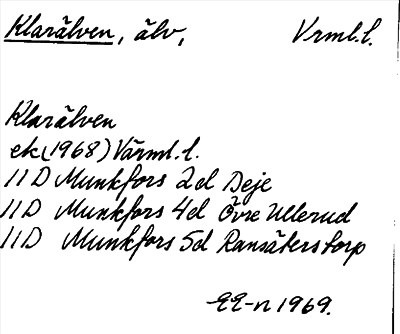 Klarälven, älv, Vrml.l.
Klarälven
ek (1968) Värml. l.
11D Munkfors 2d Deje
11D Munkfors 4d Övre Ullerud
11D Munkfors 5d Ransäters torp
EE-n 1969.